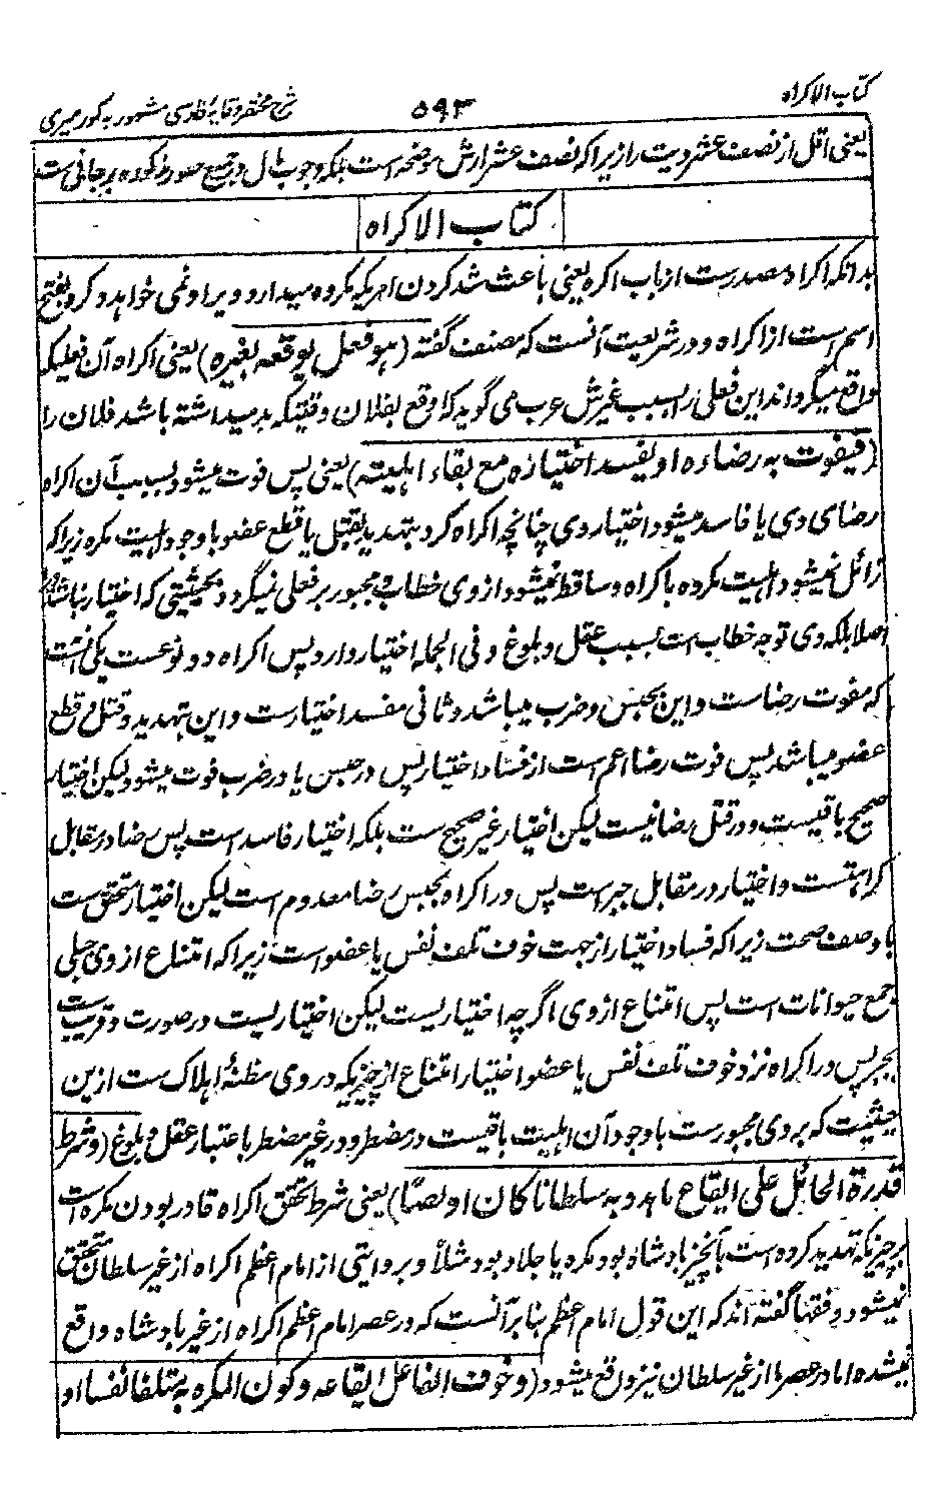 کتاب الاکراه
۵۹۳
شرح مختصر وقایه فارسی مشهور به کور میری
یعنی اقل از نصف عشر دیت را زیرا که نصف عشر ارش موضحه است بلکه وجوب مال در جمیع صور مذکوره بر جانی ست
کتاب الاکراه
بدانکه اکراه مصدرست از باب اکره یعنی باعث شد کردن امریکه مکروه میدارد ویرا و نمی خواهد و کره بفتح
اسم است از اکراه و در شریعت آنست که مصنف گفته (هو فعل یوقعه بغیره) یعنی اکراه آن فعلیکه
واقع میگرداند این فعلی را بسبب غیرش عرب می گوید که اوقع بفلان وقتیکه بد میداشته باشد فلان را
(فیفوت به رضاءه او یفسد اختیاره مع بقاء اهلیته) یعنی پس فوت میشود بسبب آن اکراه
رضای وی یا فاسد میشود اختیار وی چنانچه اکراه کرد بتهدید بقتل یا قطع عضو با وجود اهلیت مکره زیرا که
زائل نمیشود اهلیت مکره باکراه و ساقط نمیشود از وی خطاب و مجبور بر فعلی نمیگردد بحیثیتی که اختیار نباشد
اصلا بلکه وی توجه خطاب است بسبب عقل و بلوغ و فی الجمله اختیار دارد پس اکراه دو نوعست یکی آنست
که مفوت رضاست و این بحبس و ضرب میباشد و ثانی مفسد اختیارست و این بتهدید و قتل و قطع
عضو میباشد پس فوت رضا اعم است از فساد اختیار پس در حبس یا در ضرب فوت میشود لیکن اختیار
صحیح باقیست و در قتل رضا نیست لیکن اختیار غیر صحیح ست بلکه اختیار فاسد است پس رضا در مقابل
کراهتست و اختیار در مقابل جبر است پس در اکراه بحبس رضا معدوم است لیکن اختیار متحقق ست
با وصف صحت زیرا که فساد اختیار از جهت خوف تلف نفس یا عضو است زیرا که امتناع از وی جبلی
جمیع حیوانات است پس امتناع از وی اگرچه اختیاریست لیکن اختیاریست در صورت و قریب ست
بجبر پس در اکراه نزد خوف تلف نفس یا عضو اختیار امتناع از چیزیکه در وی مظنهٔ اهلاک ست ازین
حیثیت که بر وی مجبورست با وجود آن اهلیت باقیست در مضطر و در غیر مضطر باعتبار عقل و بلوغ (وشرط
قدرة الحائل علی ایقاع ما هدد به سلطانا کان او لصا) یعنی شرط تحقق اکراه قادر بودن مکره است
بر چیزیکه تهدید کرده است بآنچیز بادشاه بود مکره یا جلاد بود مثلاً و بروایتی از امام اعظم اکراه از غیر سلطان متحقق
نمیشود و فقها گفته اند که این قول امام اعظم بنا بر آنست که در عصر امام اعظم اکراه از غیر بادشاه واقع
نمیشده اما در عصر ما از غیر سلطان نیز واقع میشود (وخوف الفاعل ایقاعه وکون المکره به متلفا نفسا او